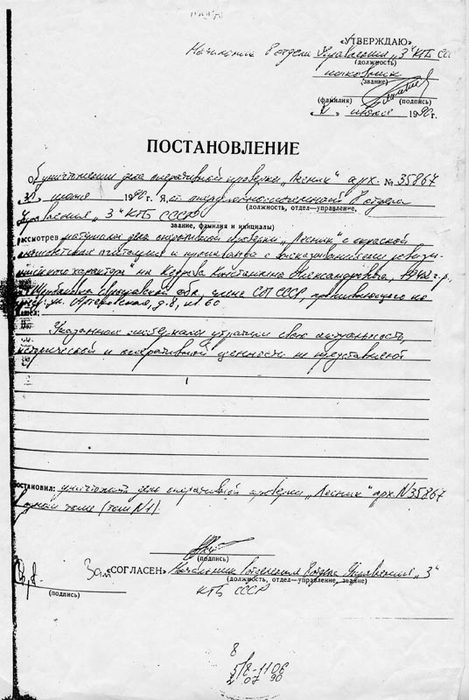 «УТВЕРЖДАЮ»
Начальник 8 отдела Управления „З" КГБ СССР
(должность)
полковник
(звание)
(фамилия) (подпись)
июля 1990 г.
ПОСТАНОВЛЕНИЕ
Об уничтожении дела оперативной проверки „Лесник" арх. № 35867
июля 1990 г. Я, 8 отдела
(должность, отдел—управление,
Управления „З" КГБ СССР
звание, фамилия и инициалы)
рассмотрев материалы дела оперативной проверки „Лесник" с окраской
антисоветская агитация и пропаганда с высказываниями ревизи-
онистского характера" на Кедрова Константина Александровича, 1942 г.р.
обл., члена СП СССР, проживающего по
Артековская, д. 8, кв. 60
нашел:
Указанные материалы утратили свою актуальность,
исторической и оперативной ценности не представляют
Постановил: уничтожить дело оперативной проверки „Лесник" арх N 35867
в одном томе (том N1).
(подпись)
Зам «СОГЛАСЕН» Начальник отделения 8 отдела Управления „З"
(должность, отдел—управление, звание)
(подпись)
КГБ СССР
8
5/8-1106
07 90